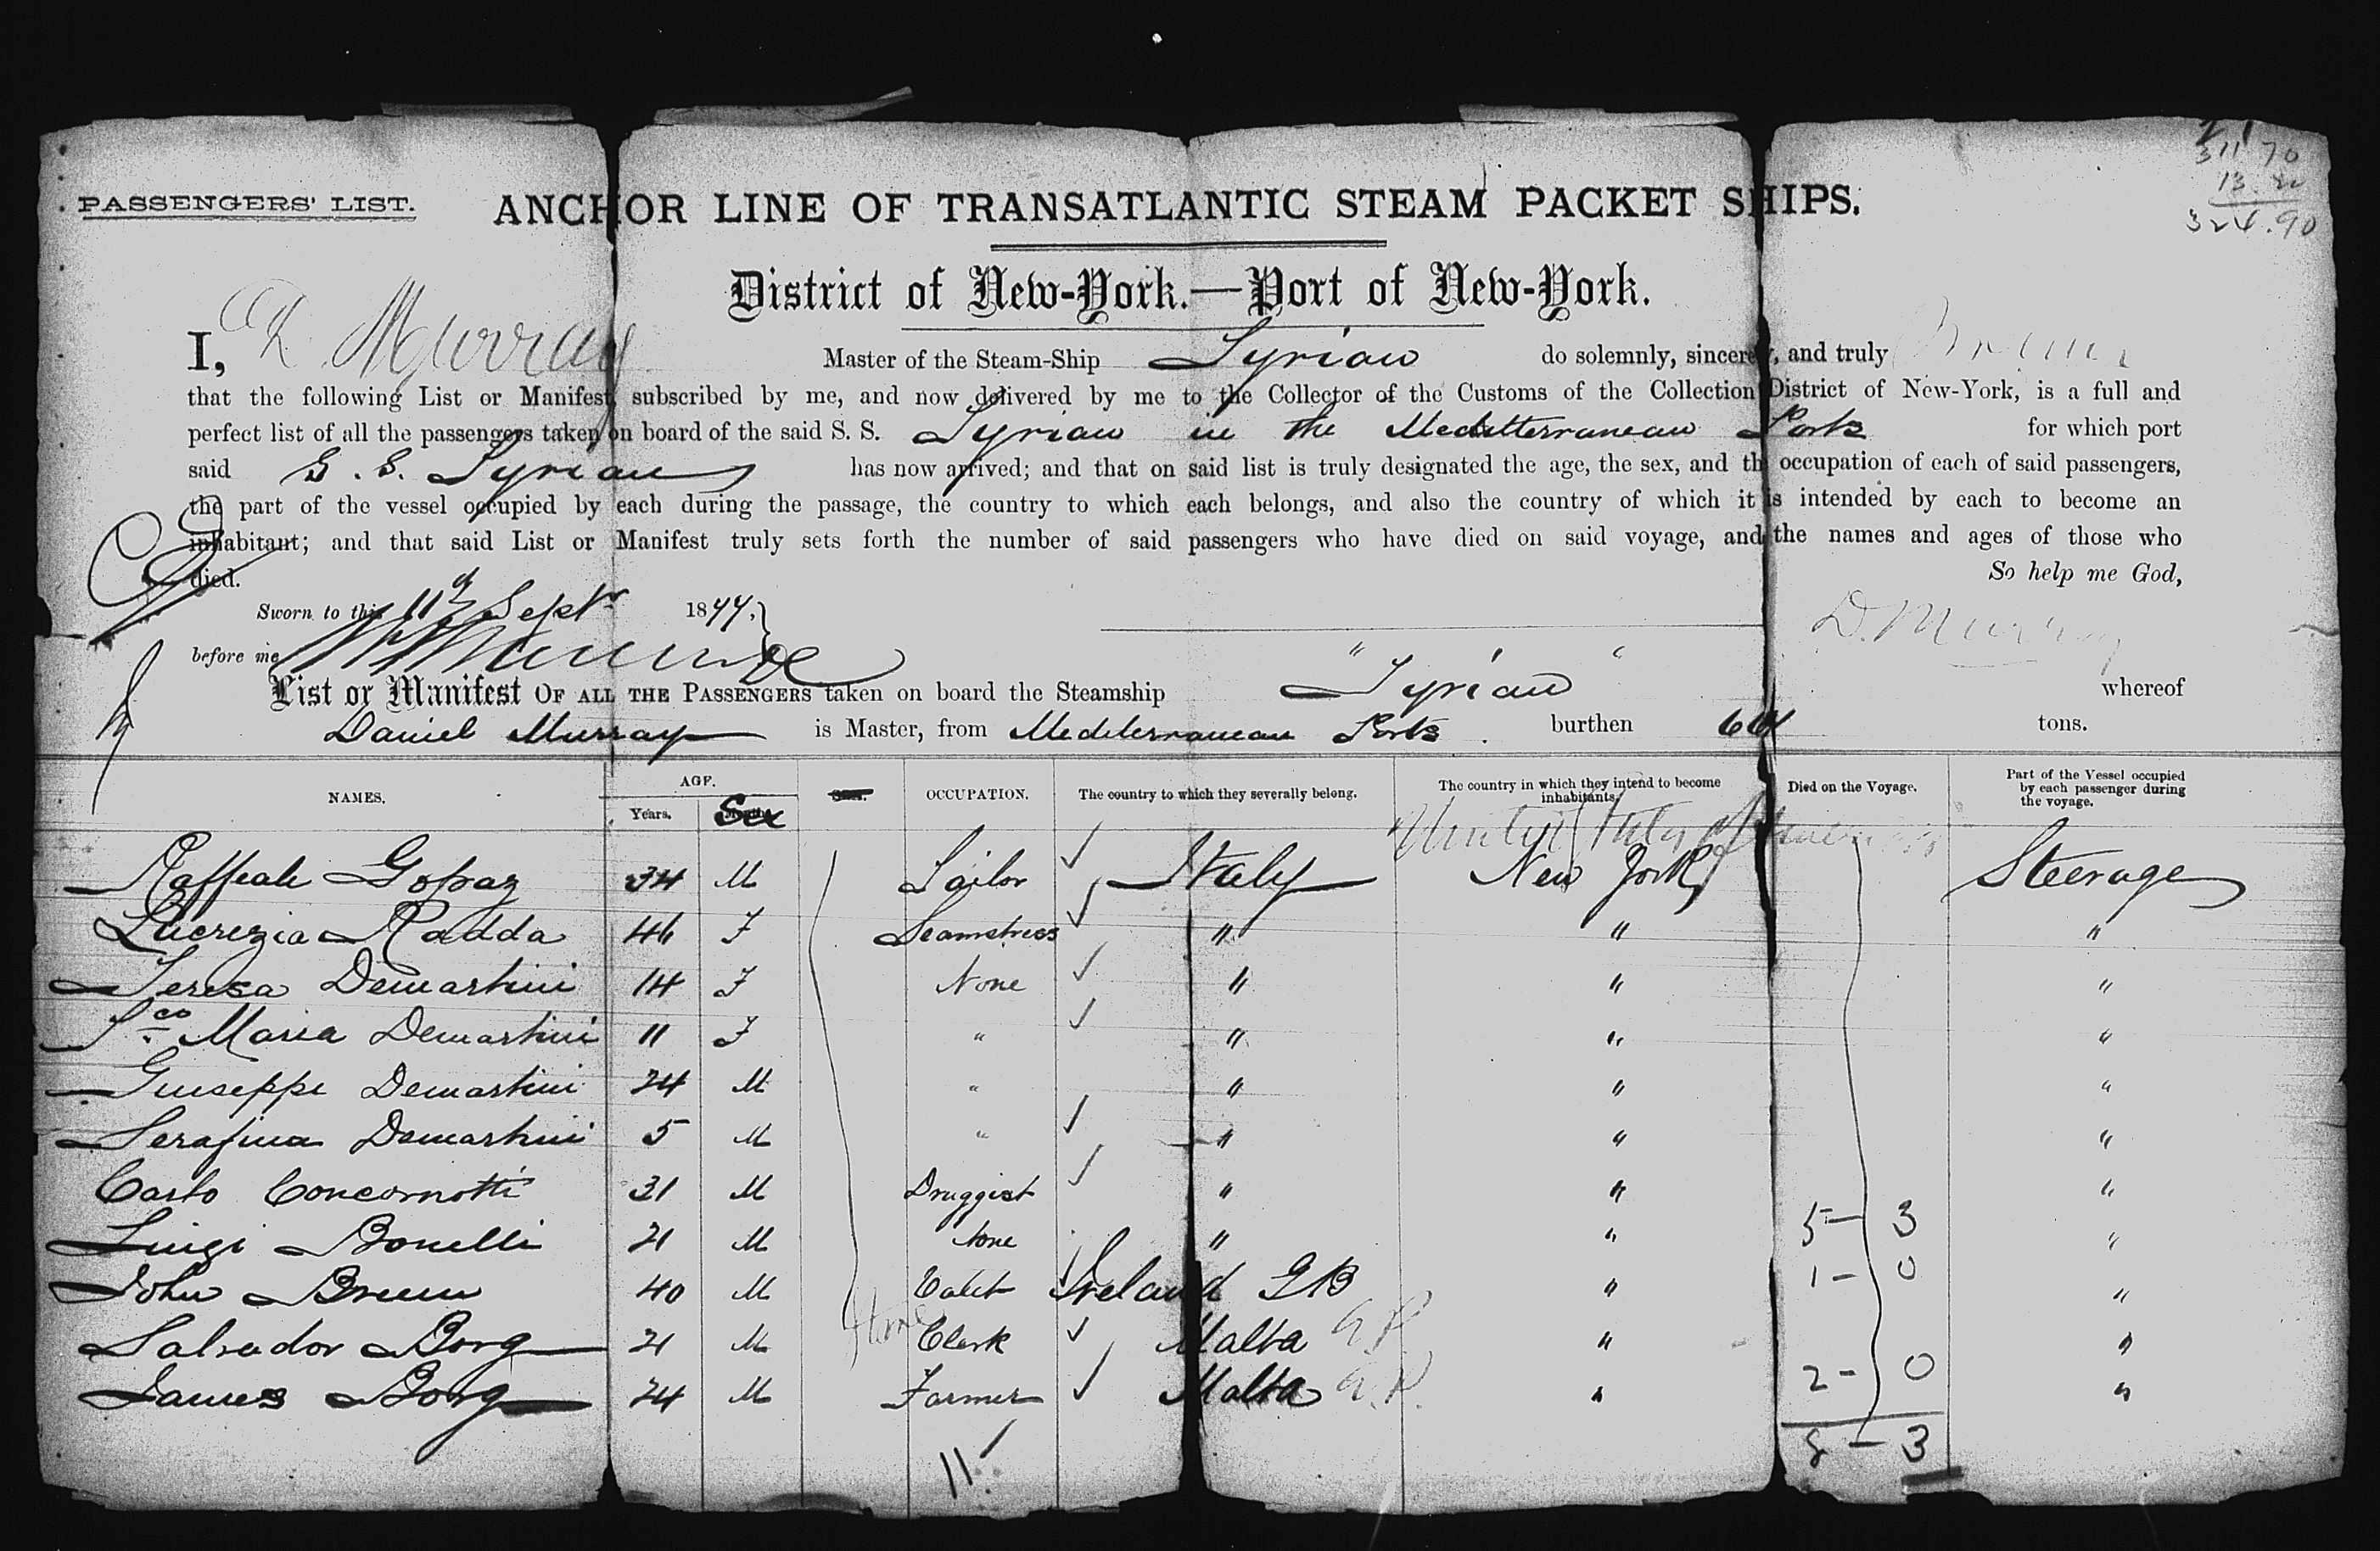 21
311 70
13. 20
324.90
PASSENGERS' LIST. ANCHOR LINE OF TRANSATLANTIC STEAM PACKET SHIPS.
District of New-York.—Port of New-York.
I, D. Murray Master of the Steam-Ship Tyrian do solemnly, sincerely, and truly
that the following List or Manifest, subscribed by me, and now delivered by me to the Collector of the Customs of the Collection District of New-York, is a full and
perfect list of all the passengers taken on board of the said S. S. Tyrian in the Mediterranean Ports for which port
said S. S. Tyrian has now arrived; and that on said list is truly designated the age, the sex, and the occupation of each of said passengers,
the part of the vessel occupied by each during the passage, the country to which each belongs, and also the country of which it is intended by each to become an
inhabitant; and that said List or Manifest truly sets forth the number of said passengers who have died on said voyage, and the names and ages of those who
died. So help me God,
Sworn to this 11th Septr 1877. D. Murray
before me
List or Manifest OF ALL THE PASSENGERS taken on board the Steamship "Tyrian" whereof
Daniel Murray is Master, from Mediterranean Ports. burthen 664 tons.
NAMES. AGE. Years. Sex OCCUPATION. The country to which they severally belong. The country in which they intend to become inhabitants. Died on the Voyage. Part of the Vessel occupied by each passenger during the voyage.
United States of America
Raffeale 34 M Tailor Italy New York Steerage
Lucrezia Radda 46 F Seamstress " " "
Teresa Demartini 14 F None " " "
Maria Demartini 11 F " " " "
Giuseppe Demartini 24 M " " " "
Serafina Demartini 5 M " " " "
Carlo 31 M Druggist " " "
Luigi Bonelli 21 M None " " 5 — 3 "
John 40 M Ireland GB " 1 — 0 "
Salvador Borg 21 M Clerk Malta " "
James Borg 24 M Farmer Malta " 2 — 0 "
11 8 — 3